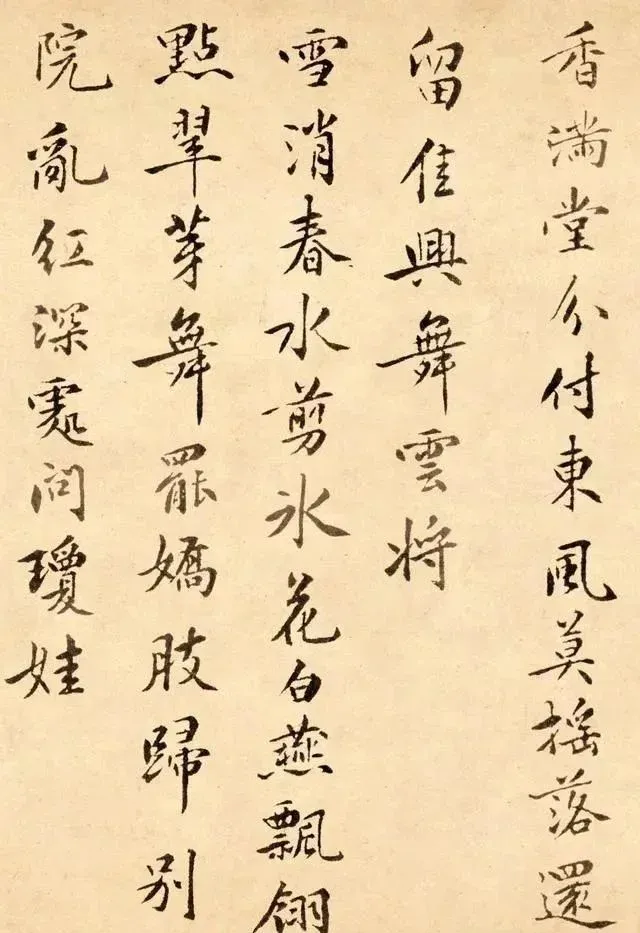 香滿堂分付東風莫搖落還
留佳興舞雲將
雪消春水剪氷花白燕飄翎
點翠芽舞罷嬌肢歸別
院亂紅深處問瓊娃